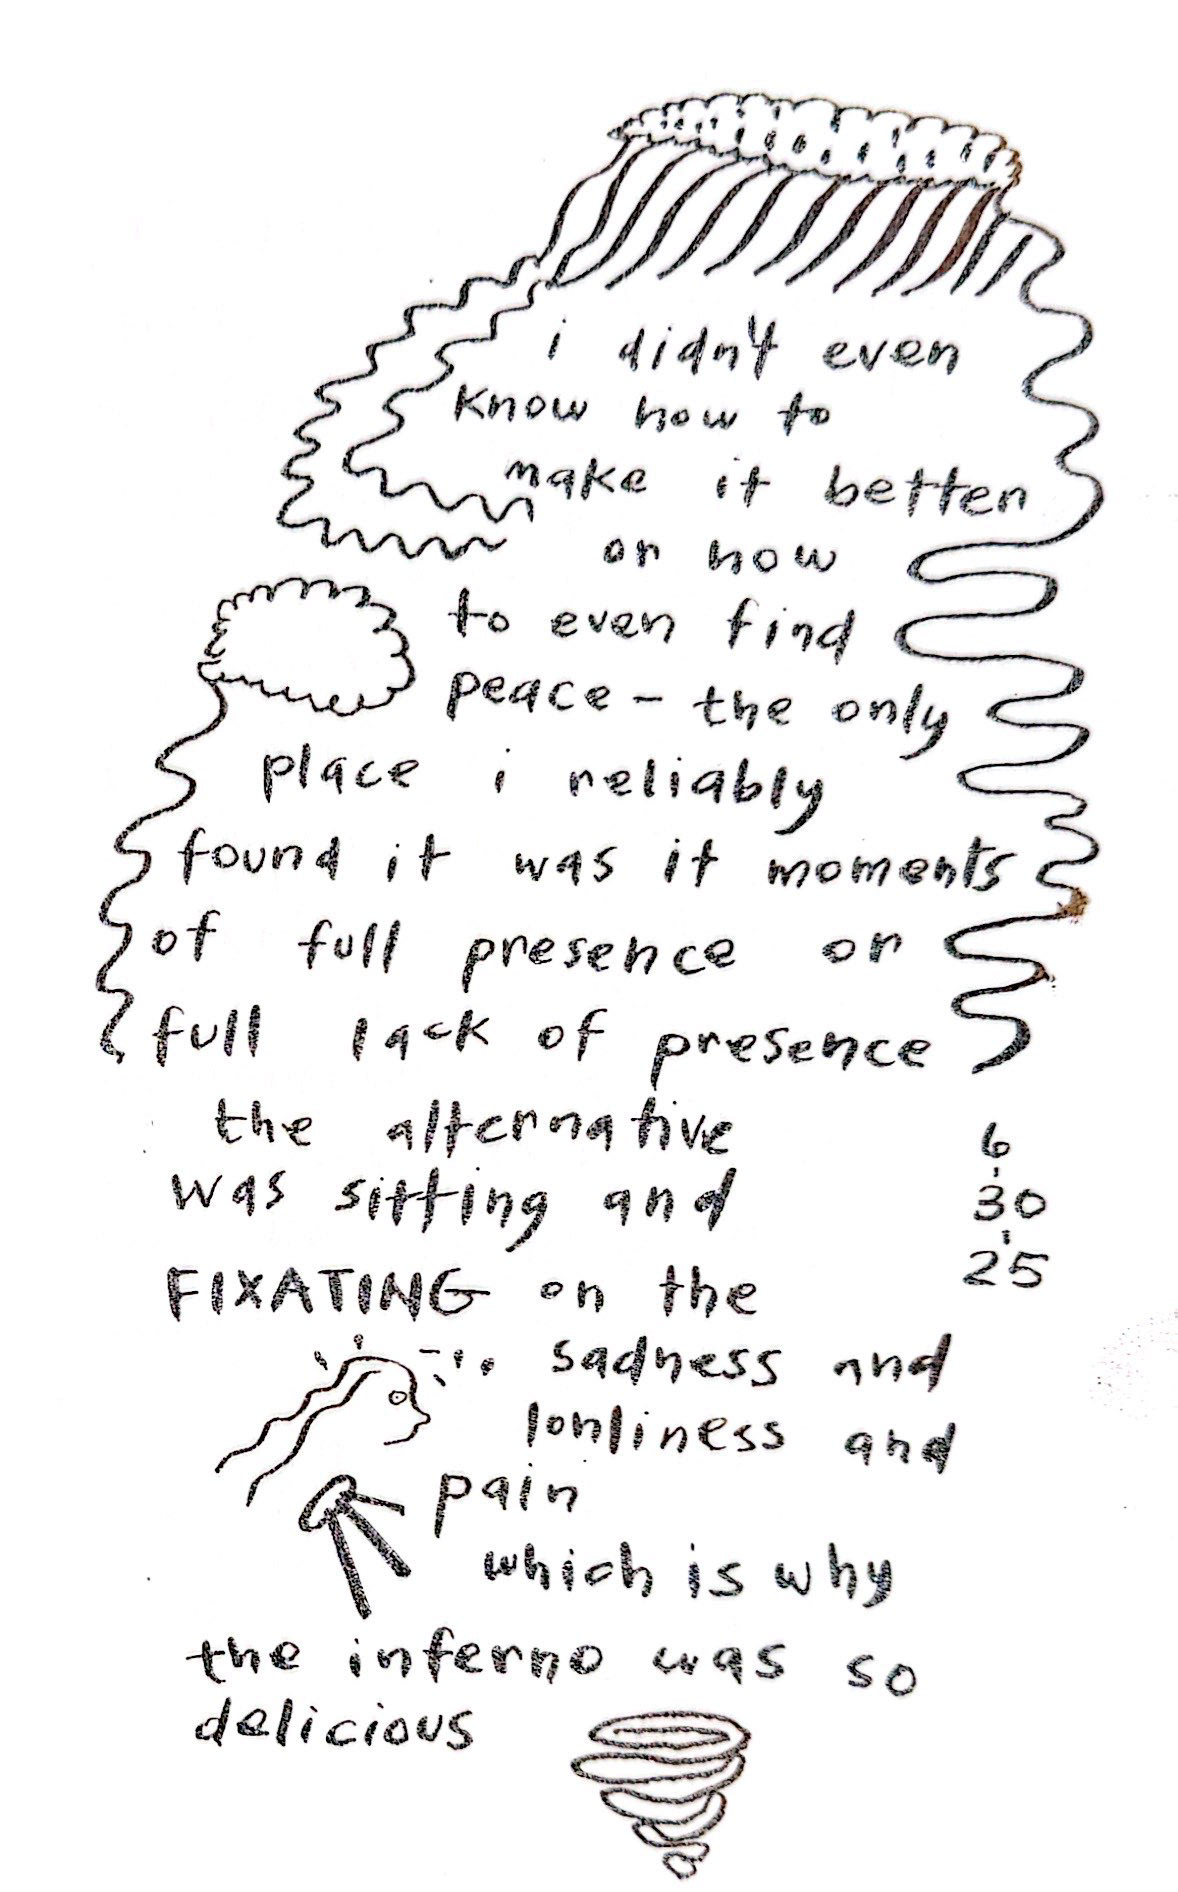 i didn't even
know how to
make it better
or how
to even find
peace – the only
place i reliably
found it was it moments
of full presence or
full lack of presence
the alternative
was sitting and
FIXATING on the
sadness and
lonliness and
pain
which is why
the inferno was so
delicious
6
30
25